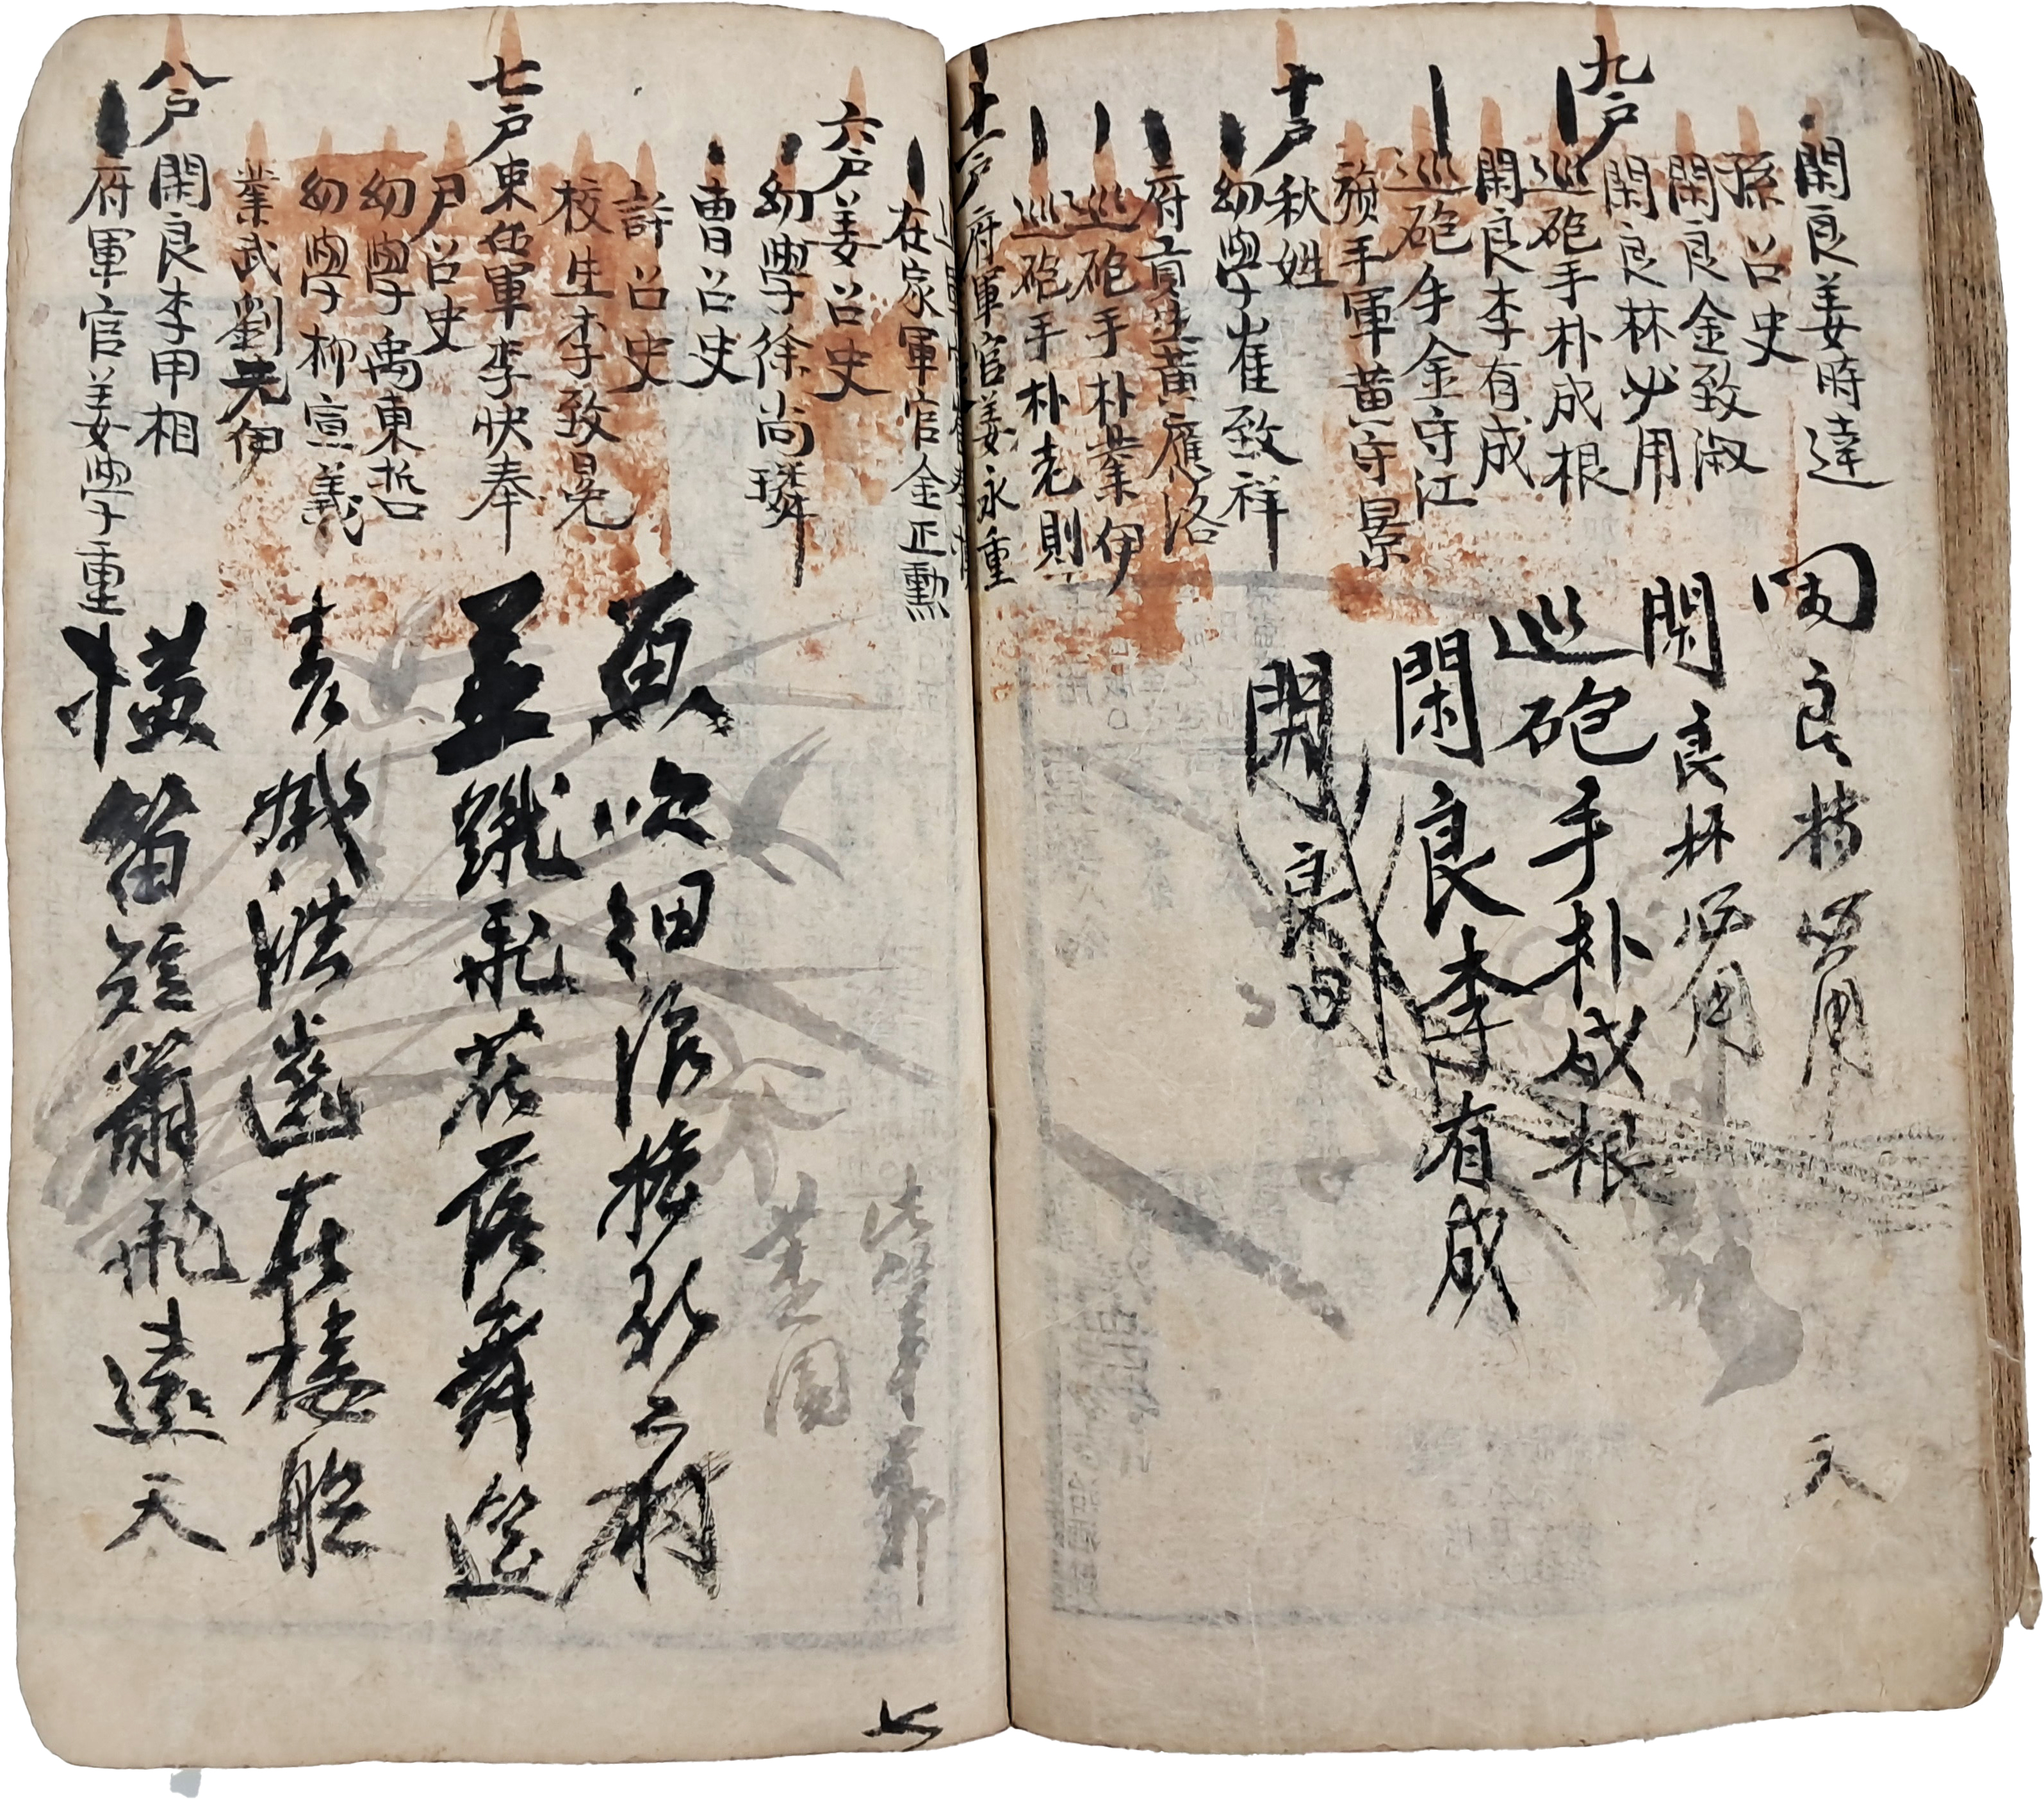 閑良姜時達
孫召史
閑良金致淑
閑良林必用
九戶
巡砲手朴成根
閑良李有成
巡砲手金守江
手軍黃守景
十戶
秋姓
幼學崔致祥
府貢生黃應洛
巡砲手朴業伊
巡砲手朴老則
十一戶
府軍官姜永重
良林必用
閑良林必用
巡砲手朴成根
閑良李有成
閑良
文
在家軍官金正勳
六戶
姜召史
幼學徐尚璘
曹召史
許召史
校生李致晃
七戶
東伍軍李快奉
尹召史
幼學禹東哲
幼學柳宣義
業武劉先伊
八戶
閑良李甲相
府軍官姜學重
魚吹細浪搖歌扇
燕蹴飛花落舞筵
青娥皓齒在樓船
橫笛短簫飛遠天